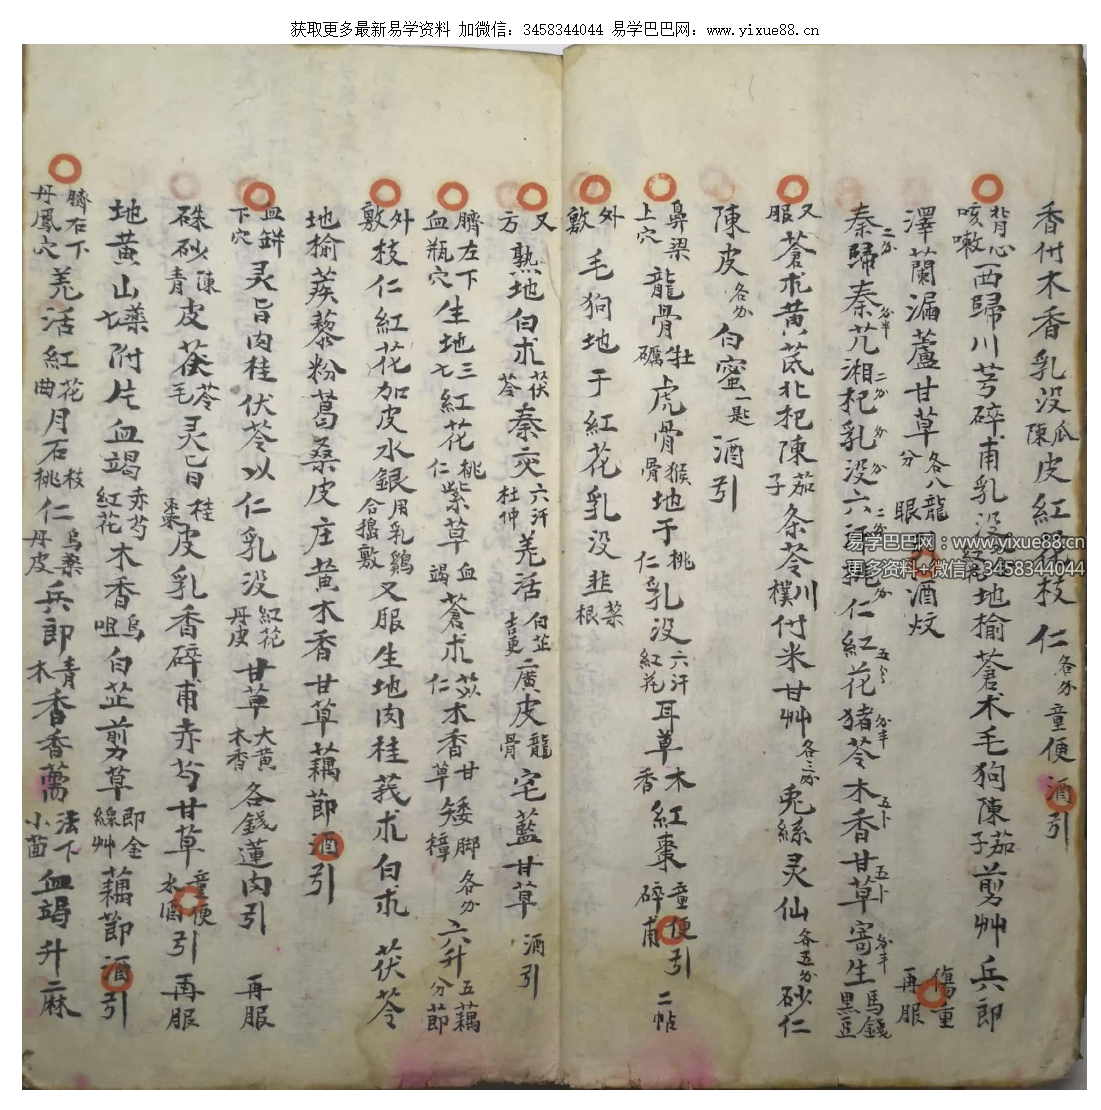 获取更多最新易学资料 加微信：3458344044 易学巴巴网：www.yixue88.cn
香付木香乳没瓜陳皮紅花枝仁各分童便酒引
背心咳嗽西歸川芎碎甫乳没地榆蒼术毛狗陳茄子剪艸兵郎
澤蘭漏蘆甘草各八分龍眼酒炆傷重再服
秦歸二分秦艽分半湘杞二分乳分没分六汗二分仁紅花五卜猪苓分半木香五卜甘草五卜寄生分半馬錢黑豆
又服蒼朮黄芪北杞陳茄子条苓川樸付米甘艸各三分兎絲灵仙各五分砂仁
陳皮各分白蜜一匙酒引
鼻梁上穴龍骨牡礪虎骨猴骨地于桃仁乳没六汗紅花耳草木香紅棗碎甫童便引二帖
外敷毛狗地于紅花乳没韭菜根
又方熟地白朮茯苓秦交六汗杜仲羌活白芷吉更廣皮龍骨宅藍甘草酒引
臍左下血瓶穴生地三七紅花桃仁紫草血竭蒼朮苡仁木香甘草矮脚樟各分六升五分藕節
外敷枝仁紅花加皮水銀用乳鷄合搗敷又服生地肉桂莪朮白朮茯苓
地榆蒺藜粉葛桑皮庄黄木香甘草藕節酒引
血餅下穴灵旨肉桂伏苓以仁乳没紅花丹皮甘草大黄木香各錢蓮肉引再服
硃砂陳青皮茯苓毛灵旨桂棗皮乳香碎甫赤芍甘草童便水酒引再服
地黄山藥七附片血竭赤芍紅花木香烏咀白芷剪草即金線艸藕節酒引
臍右下丹鳳穴羌活紅花曲月石枝桃仁烏藥丹皮兵郎青木香香薷法下小茴血竭升麻
易学巴巴网：www.yixue88.cn
更多资料+微信：3458344044